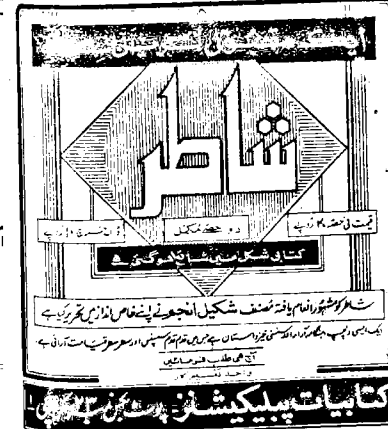 شاطر
قیمت فی حصہ ۲۰ روپے
دو حصے مکمل
ڈاک خرچ ۱۰ روپے
کتابی شکل میں شائع ہو گئی ہے
شاطر کو مشہور انعام یافتہ مصنف شکیل انجم نے اپنے خاص انداز میں تحریر کیا ہے
ایک ایسی دلچسپ، ہنگامہ آرا اور سنسنی خیز داستان ہے جس میں قدم قدم سسپنس اور سطر سطر قیامت آرائی ہے۔
آج ہی طلب فرمائیں
کتابیات پبلیکیشنز۔ پوسٹ بکس ۲۳ کراچی۔۱